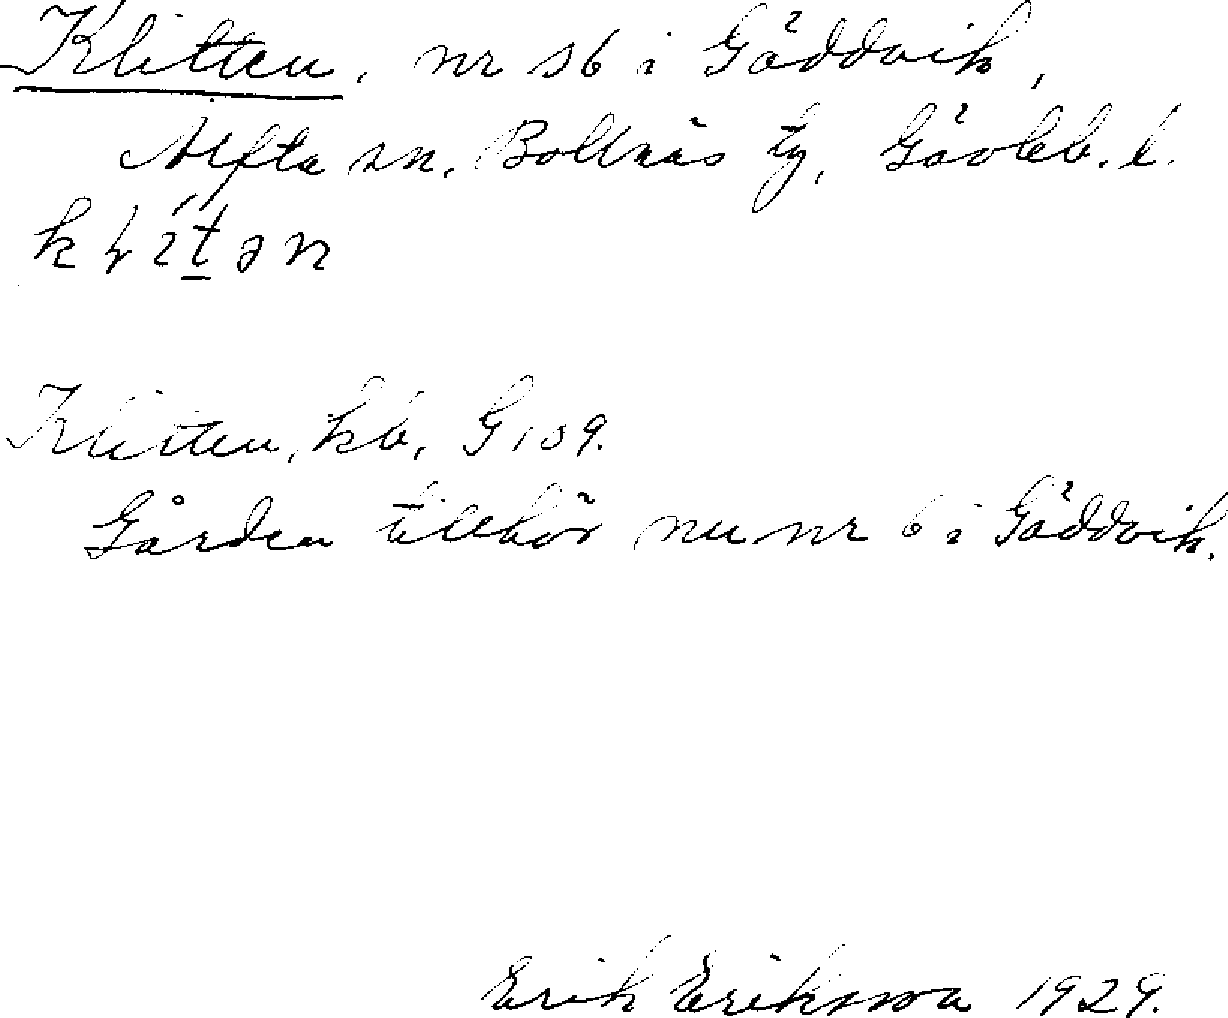 Klitten, nr 16 i Gäddvik,
Alfta sn. Bollnäs tg, Gävleb. l.
Klitten, kb, G 109.
Gården tillhör nu nr 6 i Gäddvik.
Erik Eriksson 1929.